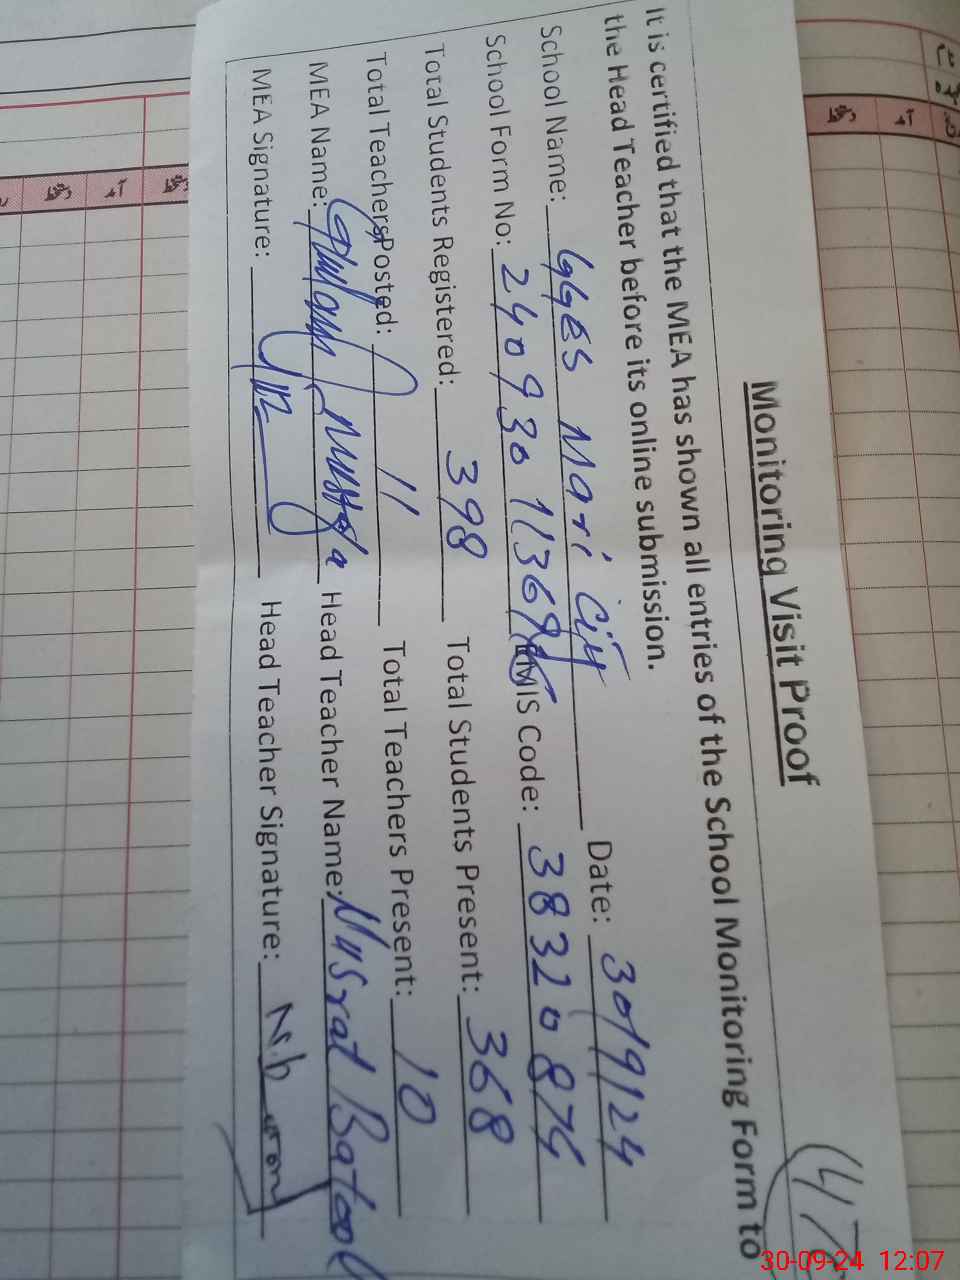 Monitoring Visit Proof
It is certified that the MEA has shown all entries of the School Monitoring Form to
the Head Teacher before its online submission.
School Name: GGES Mari City Date: 30/9/24
School Form No: EMIS Code: 38320874
Total Students Registered: 398 Total Students Present: 368
Total Teachers Posted: 11 Total Teachers Present: 10
MEA Name: Ghulam Mustafa Head Teacher Name: Nusrat Batool
MEA Signature: Head Teacher Signature:
30-09-24 12:07